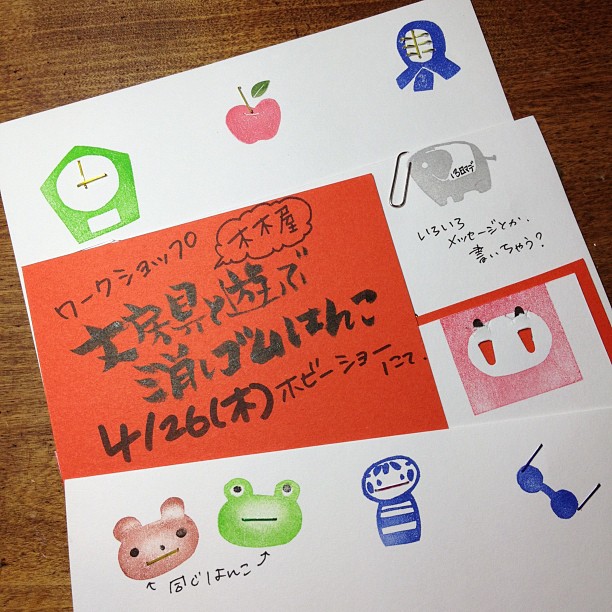 ワークショップ
木木屋
文房具と遊で
消しゴムはんこ
4/26(木)ホビーショーにて.
いろいろ
メッセージとか、
書いちゃう?
同じはんこ